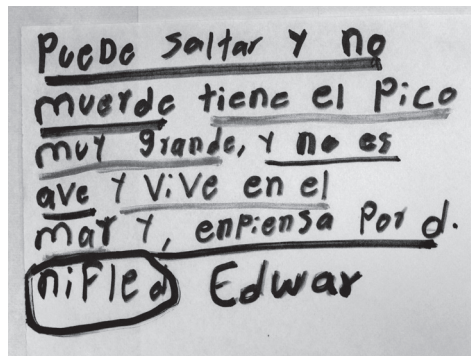 PueDe saltar y no
muerde tiene el Pico
muy grande, y no es
ave y ViVe en el
mar y, enpiensa Por d.
niFled Edwar